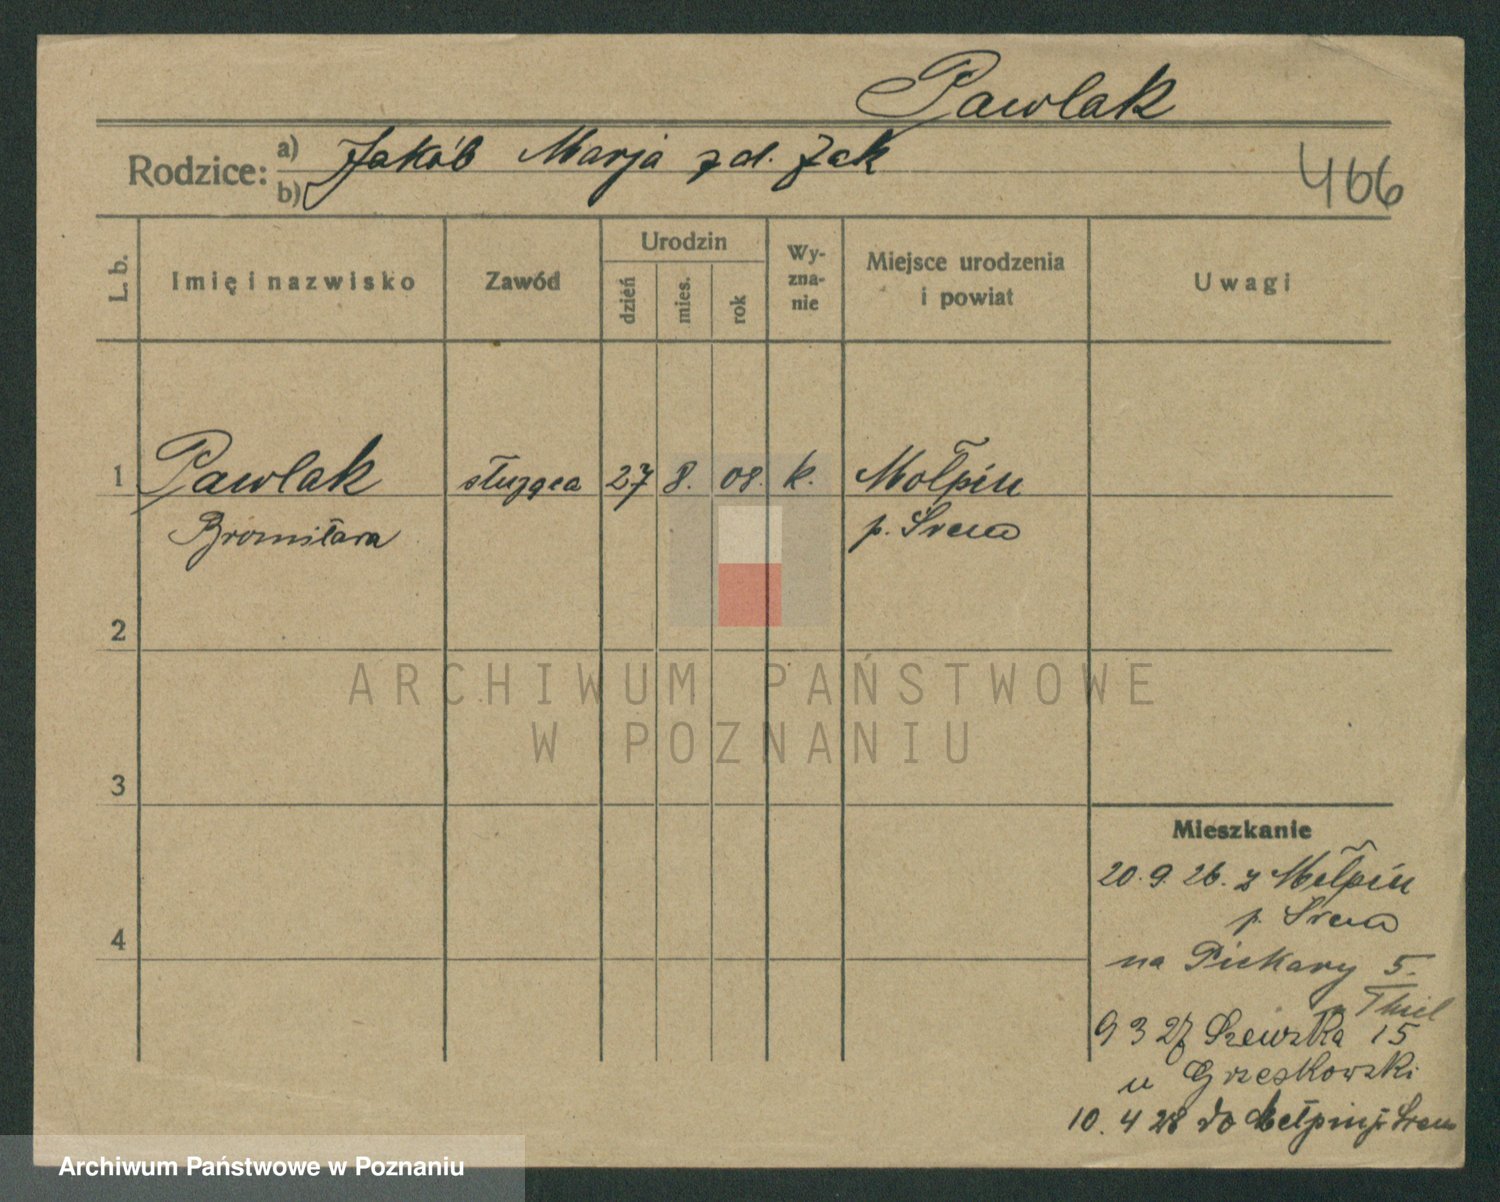 Pawlak
Rodzice: a) Jakób Marja zd. Żak
b)
466
L. b.
Imię i nazwisko
Zawód
Urodzin
dzień
mies.
rok
Wy-
zna-
nie
Miejsce urodzenia
i powiat
Uwagi
1 Pawlak służąca 27 8. 08. k. Mołpin
Bronisława p. Śrem
2
ARCHIWUM PAŃSTWOWE
W POZNANIU
3
Mieszkanie
20.9.26. z Mełpin
p. Śrem
4
na Piekary 5.
u Thiel
9 3 27 Szewska 15
u Grzeskowski
10. 4 28 do Mełpin p. Śrem
Archiwum Państwowe w Poznaniu